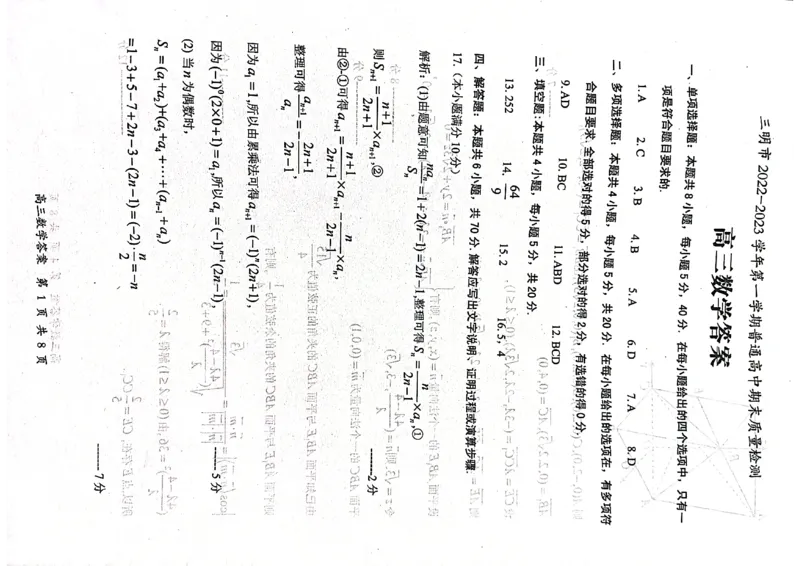 三明市 2022–2023 学年第一学期普通高中期末质量检测
高三数学答案
一、单项选择题：本题共 8 小题，每小题 5 分，40 分．在每小题给出的四个选项中，只有一
项是符合题目要求的.
1. A 2. C 3. B 4. B 5. A 6. D 7. A 8. D
二、多项选择题：本题共 4 小题，每小题 5 分，共 20 分．在每小题给出的选项在，有多项符
合题目要求. 全部选对的得 5 分，部分选对的得 2 分，有选错的得 0 分.
9. AD 10. BC 11. ABD 12. BCD
三、填空题：本题共 4 小题，每小题 5 分，共 20 分.
13. 252 14. 64/9 15. 2 16. 5；4
四、解答题：本题共 6 小题，共 70 分. 解答应写出文字说明、证明过程或演算步骤.
17.（本小题满分 10 分）
解析：(1)由题意可知 na_n/S_n = 1+2(n−1) = 2n−1,整理可得 S_n = n/(2n−1) ×a_n,①
则 S_{n+1} = (n+1)/(2n+1) ×a_{n+1},② --------2 分
由②-①可得 a_{n+1} = (n+1)/(2n+1) ×a_{n+1} − n/(2n−1) ×a_n,
整理可得 a_{n+1}/a_n = −(2n+1)/(2n−1),
因为 a_1 = 1,所以由累乘法可得 a_{n+1} = (−1)^n(2n+1),
因为 (−1)^0(2×0+1) = a_1,所以 a_n = (−1)^{n−1}(2n−1), --------5 分
(2) 当 n 为偶数时,
S_n = (a_1+a_2)+(a_3+a_4+⋯+(a_{n−1}+a_n)
=1−3+5−7+2n−3−(2n−1)=(−2)·n/2=−n --------7 分
高三数学答案 第 1 页 共 8 页